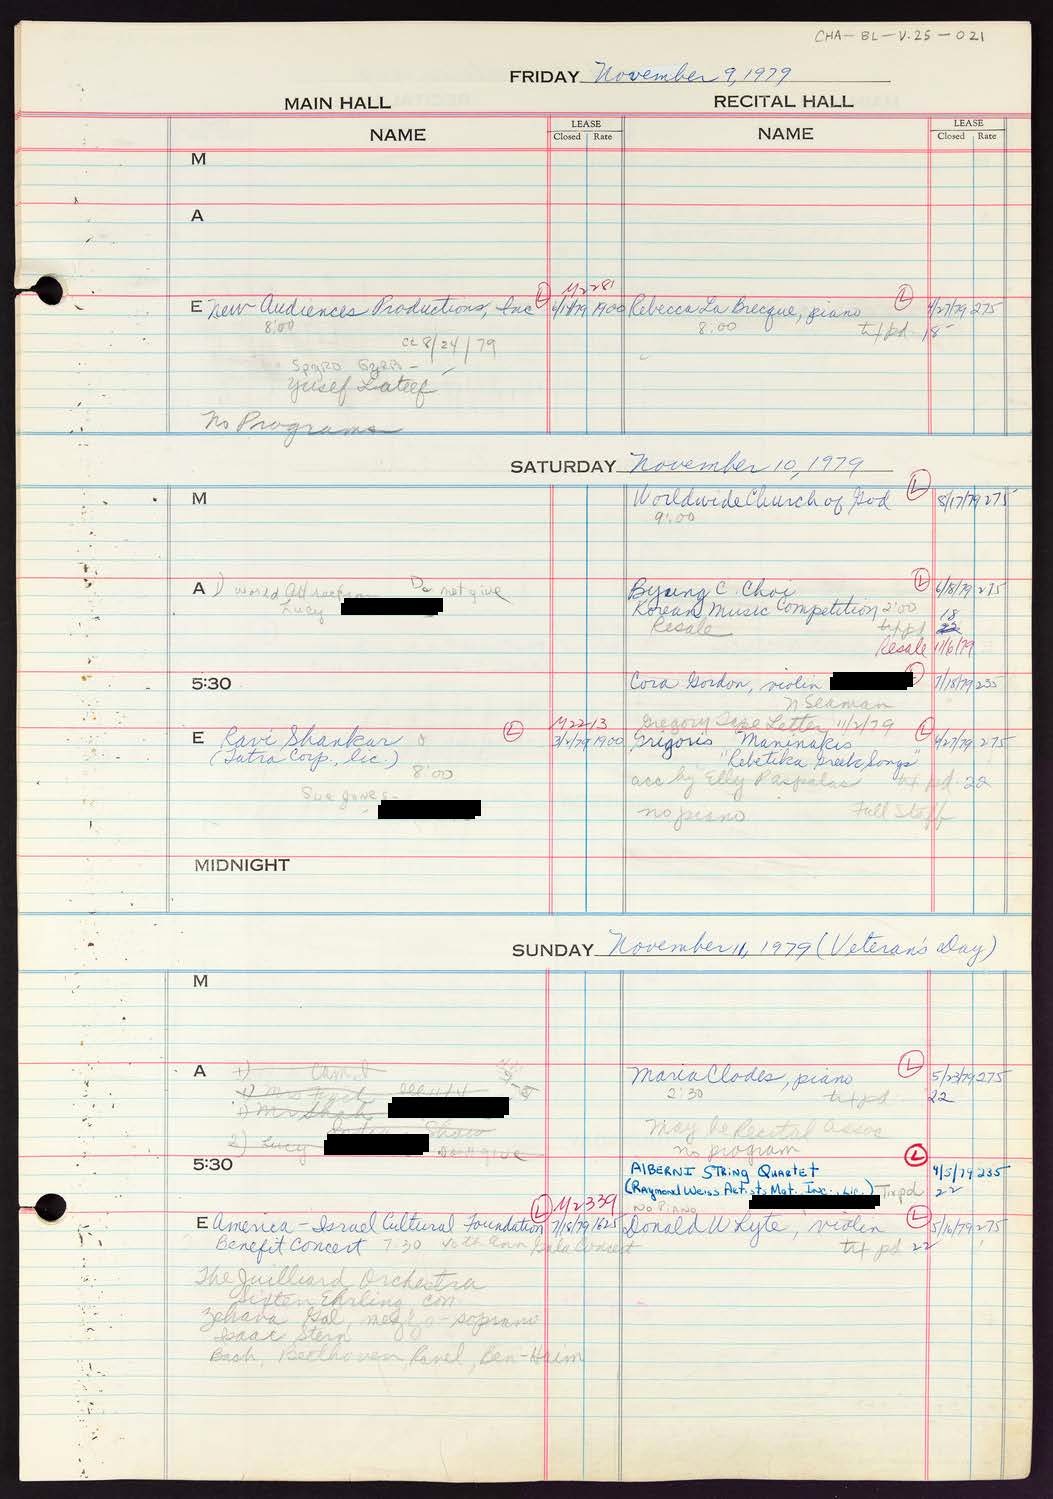 CHA-BL-V.25-021
FRIDAY November 9, 1979
MAIN HALL
RECITAL HALL
NAME
LEASE
Closed Rate
NAME
LEASE
Closed Rate
M
A
M2281
E New Audiences Productions, Inc L 1900
8:00
cc 8/24/79
Spyro Gyra -
Yusef Lateef
No Programs
Rebecca La Brecque, piano L 4/27/79 275
8:00 txt pd 18
SATURDAY November 10, 1979
M
Worldwide Church of God L 8/17/79 275
9:00
A 1) World Attraction Do not give
Lucy
Byung C. Choi L 6/8/79 275
Korean Music Competition 2:00 18
Resale txt pd 22
Resale 11/6/79
5:30
Cora Gordon, violin L 7/18/79 235
Seaman
Gregory Tape Letter 11/2/79
M2213
E Ravi Shankar L 1900
(Jatra Corp., lic.)
8:00
Sue Jones -
Grigoris Maninakis L 4/27/79 275
"Rebetika Greek Songs"
acc by Elly Paspalas txt pd. 22
no piano Full Staff
MIDNIGHT
SUNDAY November 11, 1979 (Veteran's Day)
M
A 1)
1) Mr
1) Mr Shah
Indian Show
2) Lucy Don't give
Maria Clodes, piano L 5/23/79 275
2:30 txt pd 22
May be Recital Assoc
no program
5:30
Alberni String Quartet L 4/5/79 235
(Raymond Weiss Artists Mgt. Inc., Lic.) Tix pd 22
No Piano
L M2339
E America-Israel Cultural Foundation 7/18/79 1625
Benefit Concert 7:30 40th Ann Gala Concert
The Juilliard Orchestra
Sixten Ehrling, con
Zehava Gal, mezzo-soprano
Isaac Stern
Bach, Beethoven, Ravel, Ben-Haim
Donald W Lyte, violin L 5/16/79 275
txt pd 22